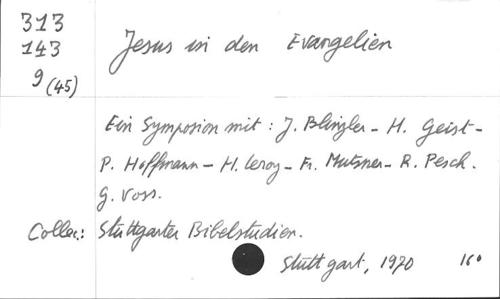 313
143
9 (45)
Jesus in den Evangelien
Ein Symposion mit : J. Blinzler - H. Geist -
P. Hoffmann - H. Leroy - Fr. Mutsner - R. Pesch.
G. Voss.
Collec.: Stuttgarter Bibelstudien.
Stuttgart, 1970 16°